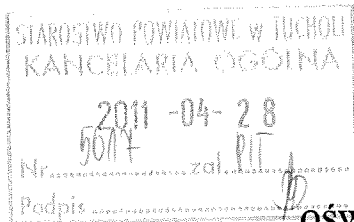 STAROSTWO POWIATOWE W TUCHOLI
KANCELARIA OGÓLNA
2011 -04- 28
Nr. zał.
Podpis